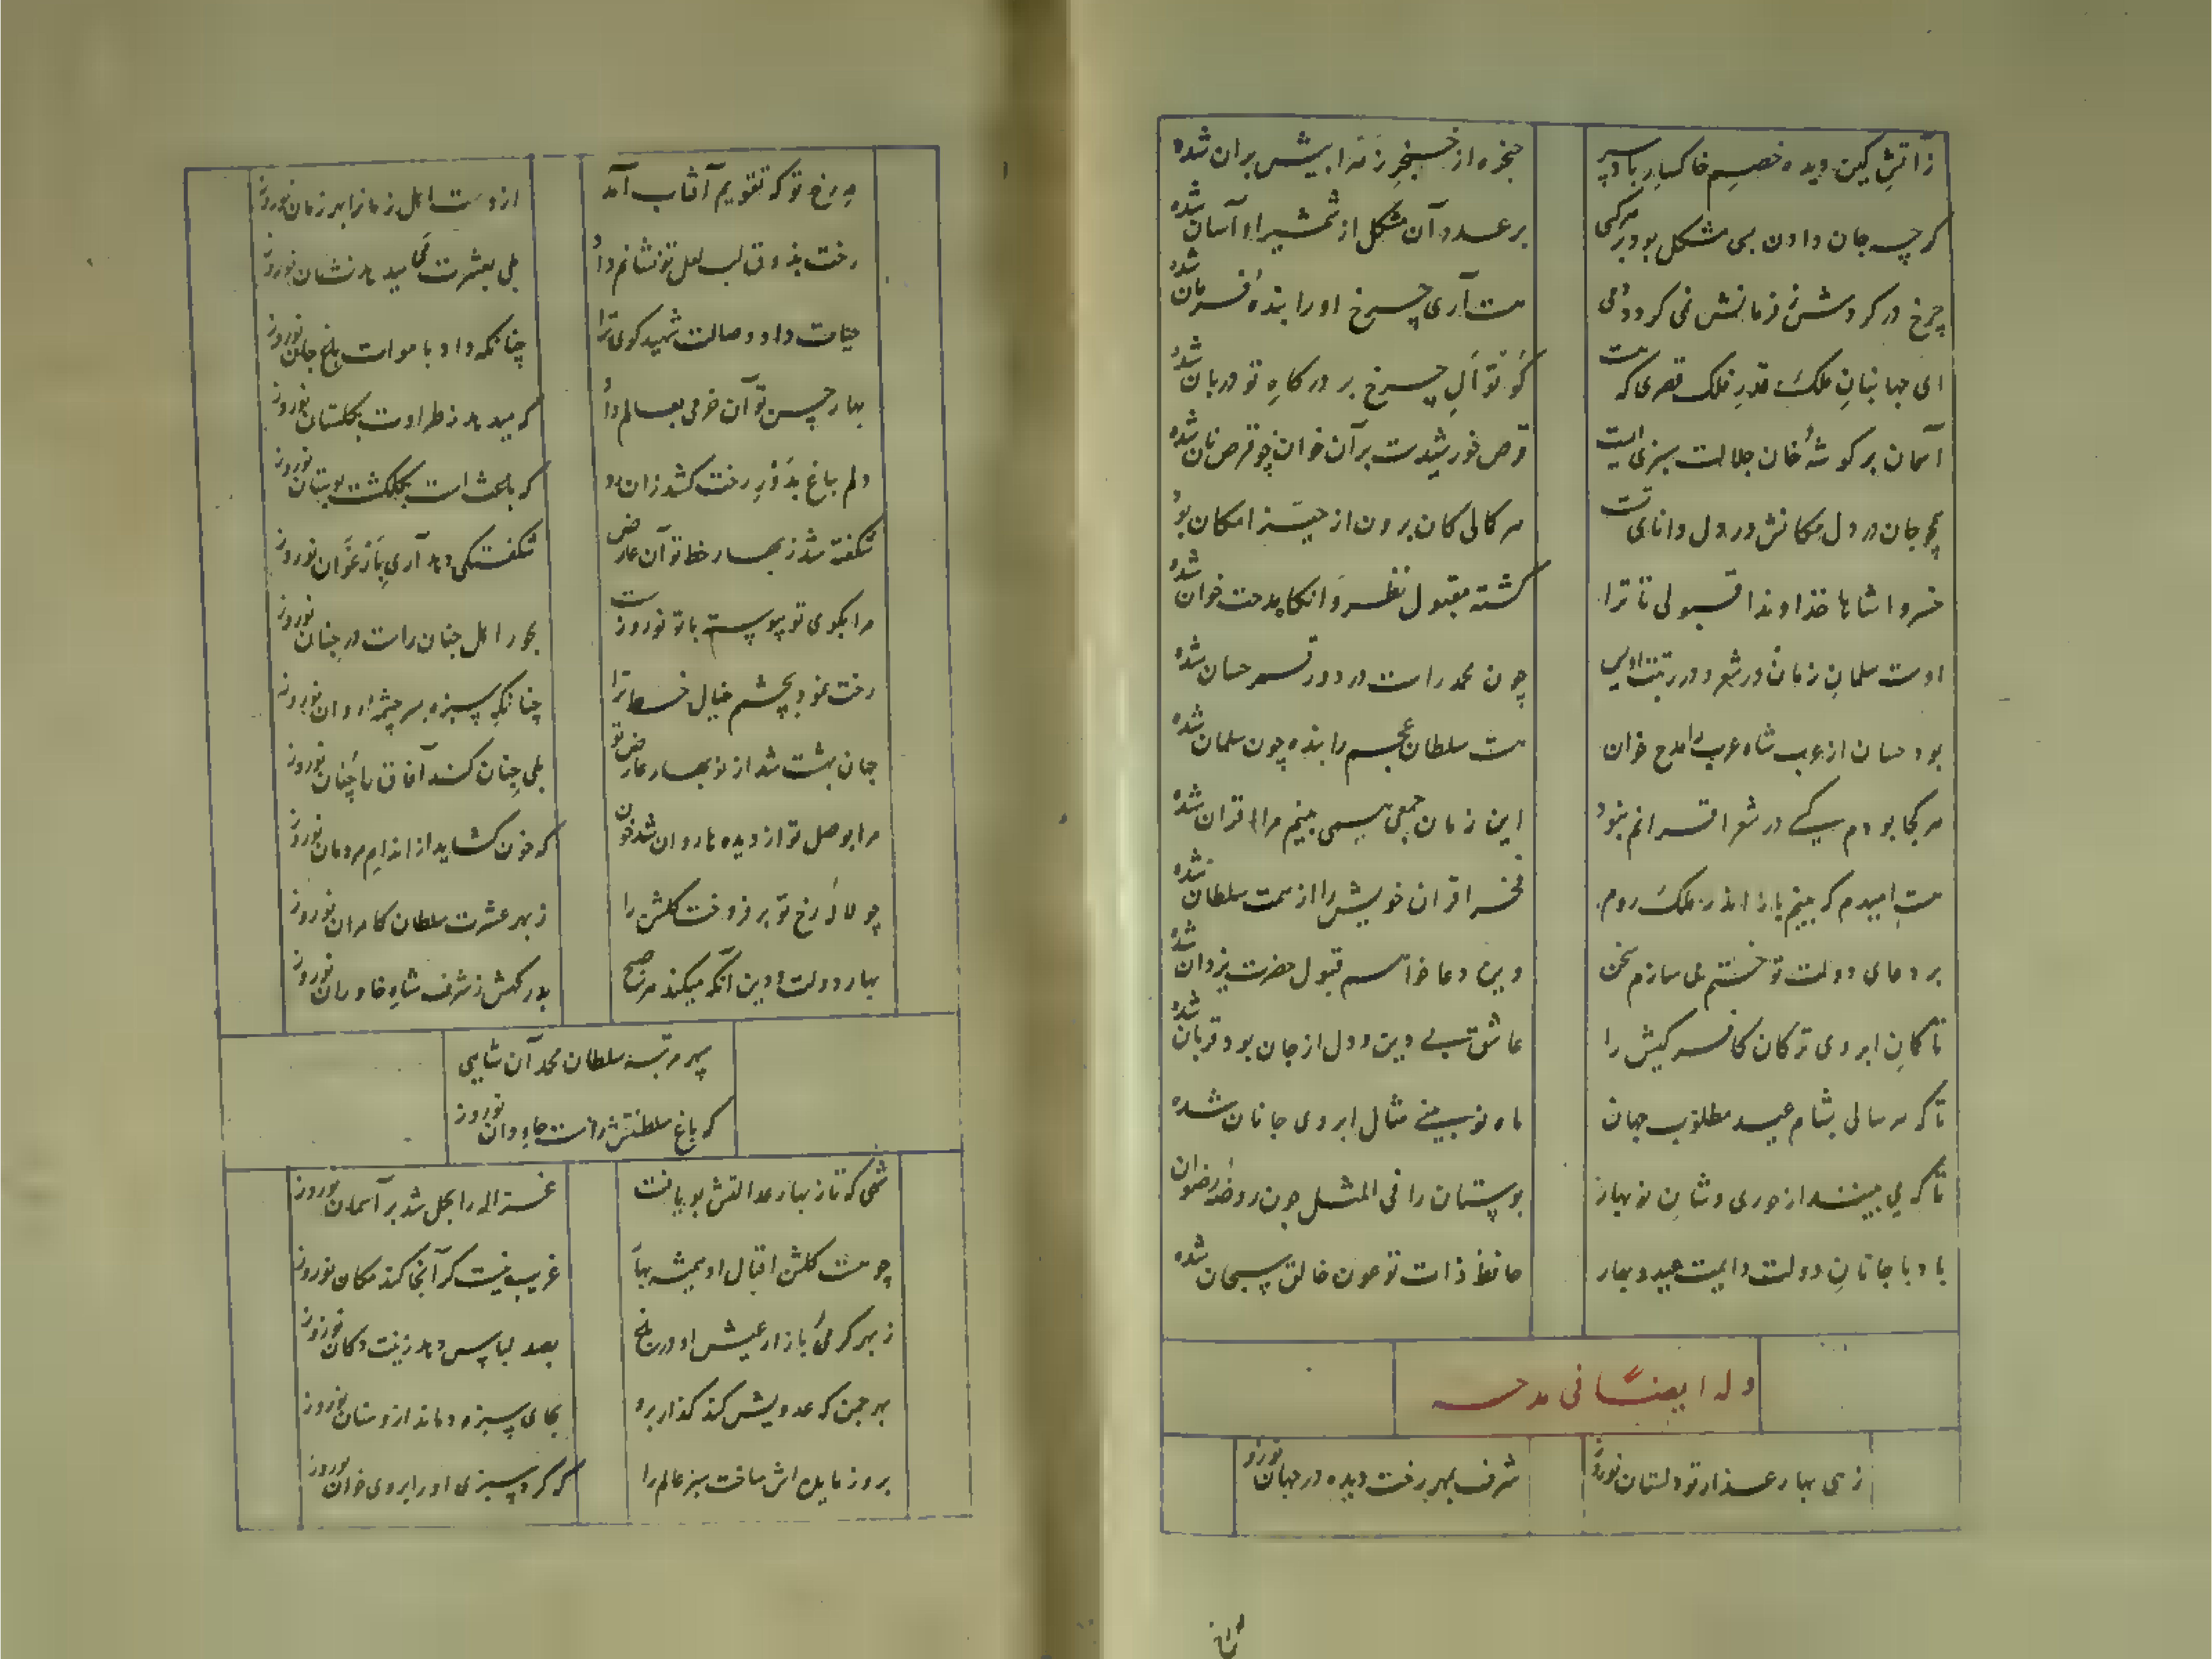 زآتش کین دیده خصم خاکسار باد پر
حنجره از خنجر زنده آبش بران شده
کرچه جان دادن بسی مشکل بود بر هر کسی
بر عدو آن مشکل از شمشیر او آسان شده
چرخ در کردش ز فرمانش نمی کردد دمی
هست آری چرخ او را بنده فرمان شده
ای جهانبان ملک قدر فلک قصری که هست
آسمان بر کوشهٔ خان جلالت سبزی ایست
قرص خورشیدست بر آن خوان چو قرص نان شده
همچو جان در دل مکانش در دل دانای تست
هر کمالی کان برون از حیّز امکان بود
خسروا شاها خداوندا قبولی تا ترا
کشته مقبول نظر وانکاه مدحت خوان شده
اوست سلمان زمان در شعر و در رتبت اویس
چون محمد راست در دور قمر حسان شده
بود حسان از عرب شاه عرب را مدح خوان
هست سلطان عجم را بنده چون سلمان شده
هر کجا بودم یکی در شعر اقرانم نبود
این زمان جمعی همی بینم مرا اقران شده
هست امیدم که بینم باز اندر ملک روم
فخر اقران خویش را از سمت سلطان شده
بر دعای دولت تو ختم می سازم سخن
وین دعا خواهم قبول حضرت یزدان شده
تا کمان ابروی ترکان کافر کیش را
عاشق بی دین و دل از جان بود قربان شده
تا که هر سالی بشام عید مطلوب جهان
ماه نو بینی مثال ابروی جانان شده
تا که می بینند از حوری وشان نوبهار
بوستان را فی المثل چون روضه رضوان شده
باد با جانان دولت دایمت عید و بهار
حافظ ذات تو عون خالق سبحان شده
وله ایضاً فی مدحه
زهی بهار عذار تو دلستان نوروز
شرف بمهر رخت دیده در جهان نوروز
مه رخ تو که تقویم آفتاب آمد
رخت بذوق لب لعل تو نشانم داد
بلی بعشرت می میدهد نشان نوروز
حیات داد وصالت شهید کوی ترا
چنانکه داد باموات باغ جان نوروز
بهار حسن تو آن خرمی بعالم داد
که میدهد ز طراوت بکلستان نوروز
دلم بباغ بدور رخت کشد زان رو
که باعث است بکلکشت بوستان نوروز
شکفته شد ز بهار خط تو آن عارض
شکفتکی دهد آری بارغوان نوروز
مرا بکوی تو پیوسته با تو نوروزست
بحور اهل جنان راست در جنان نوروز
رخت نمود بچشم خیال خط ترا
چنانکه سبزه بسر چشمه روان نوروز
جهان بهشت شد از نوبهار عارض تو
بلی چنان کند آفاق را چنان نوروز
مرا بوصل تو از دیده ها روان شد خون
که خون کشاید از اندام مردمان نوروز
چو لالهٔ رخ تو بر فروخت کلشن را
ز بهر عشرت سلطان کامران نوروز
بهار دولت و دین آنکه میکند هر صبح
بدرکهش ز شرف شاه خاوران نوروز
سپهر مرتبه سلطان محمد آن شاهی
که باغ سلطنتش راست جاودان نوروز
شهی که تا ز بهار عدالتش بو یافت
غزاله را بحمل شد بر آسمان نوروز
چو هست کلشن اقبال او همیشه بهار
غریب نیست کر آنجا کند مکان نوروز
ز بهر کرمی بازار عیش او در باغ
بصد لباس دهد زینت دکان نوروز
بهر چمن که عدویش کند کذار برو
بجای سبزه دماند ازو سنان نوروز
بروز مایده اش ساخت سبز عالم را
که کرد سبزی او را بروی خوان نوروز